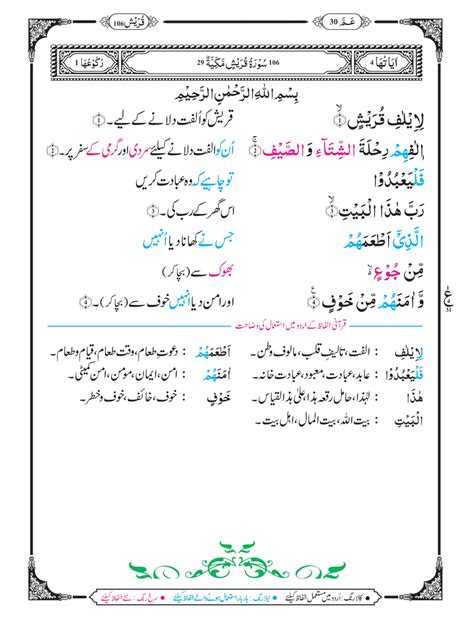 عَـمَّ 30 قُرَيْش 106
اٰيَاتُهَا 4 106 سُوْرَةُ قُرَيْشٍ مَكِّيَّةٌ 29 رُكُوْعُهَا 1
بِسْمِ اللّٰهِ الرَّحْمٰنِ الرَّحِيْمِ
لِاِيْلٰفِ قُرَيْشٍ ۙ﴿۱﴾ قریش کو اُلفت دلانے کے لیے۔﴿۱﴾
اٖلٰفِهِمْ رِحْلَةَ الشِّتَآءِ وَ الصَّيْفِ ۚ﴿۲﴾ اُن کو الفت دلانے کیلئے سردی اور گرمی کے سفر پر۔﴿۲﴾
فَلْيَعْبُدُوْا تو چاہیے کہ وہ عبادت کریں
رَبَّ هٰذَا الْبَيْتِ ۙ﴿۳﴾ اس گھر کے رب کی۔﴿۳﴾
الَّذِيْۤ اَطْعَمَهُمْ جس نے کھانا دیا اُنہیں
مِّنْ جُوْعٍ ۙ بھوک سے (بچا کر)۔
وَّ اٰمَنَهُمْ مِّنْ خَوْفٍ ﴿۴﴾ اور امن دیا انہیں خوف سے (بچا کر)۔﴿۴﴾
ع
31
قرآنی الفاظ کے اردو میں استعمال کی وضاحت
لِاِيْلٰفِ : الفت، تالیفِ قلب، مالوف وطن۔ اَطْعَمَهُمْ : دعوتِ طعام، وقت طعام، قیام و طعام۔
فَلْيَعْبُدُوْا : عابد، عبادت، معبود، عبادت خانہ۔ اٰمَنَهُمْ : امن، ایمان، مؤمن، امن کمیٹی۔
هٰذَا : لہٰذا، حامل رقعہ ہذا، علیٰ ہذا القیاس۔ خَوْفٍ : خوف، خائف، خوف و خطر۔
الْبَيْتِ : بیت اللہ، بیت المال، اہل بیت۔
کالا رنگ : اُردو میں مستعمل الفاظ کیلئے نیلا رنگ : بار بار استعمال ہونے والے الفاظ کیلئے سرخ رنگ : نئے الفاظ کیلئے